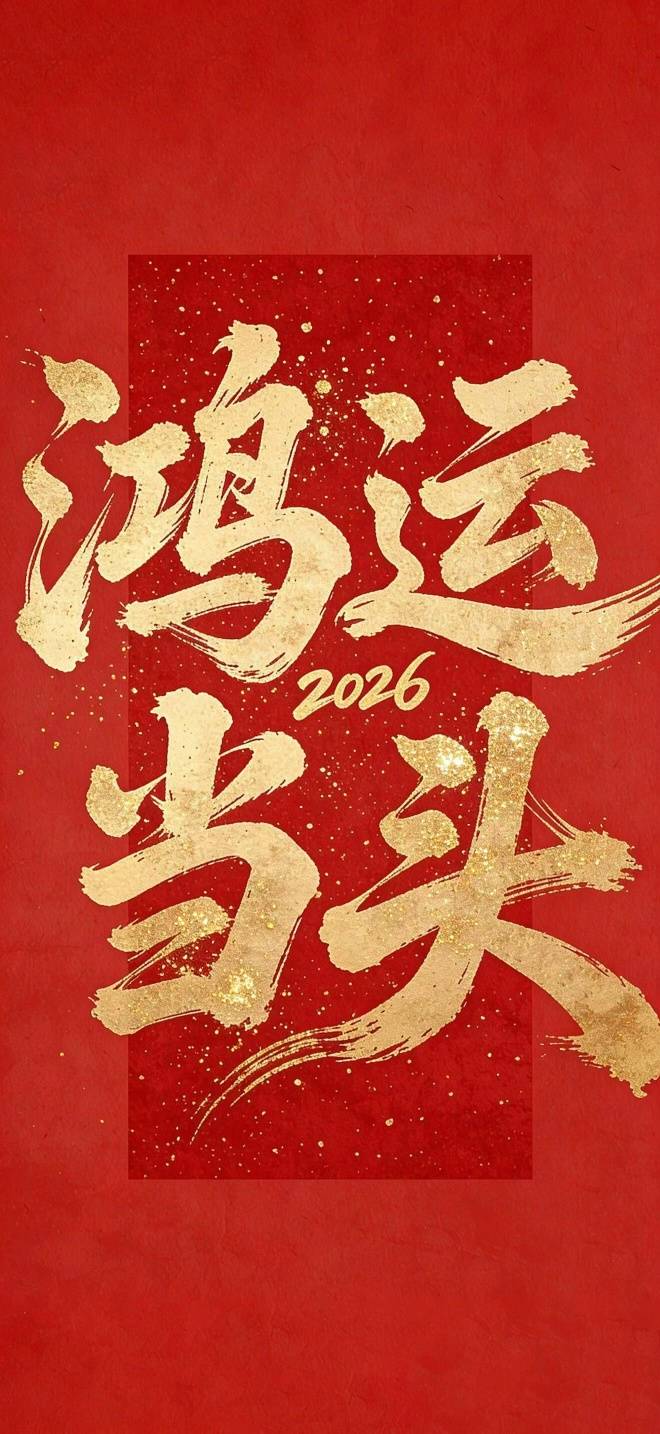 鸿运
2026
当头